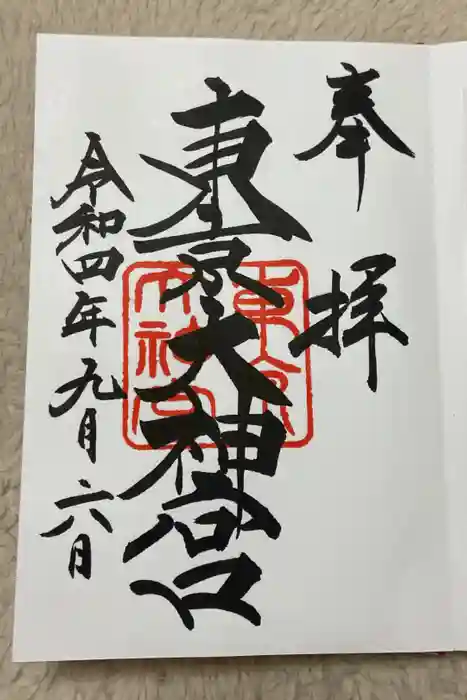 奉拝
東京大神宮
東京
大神宮
令和四年九月六日